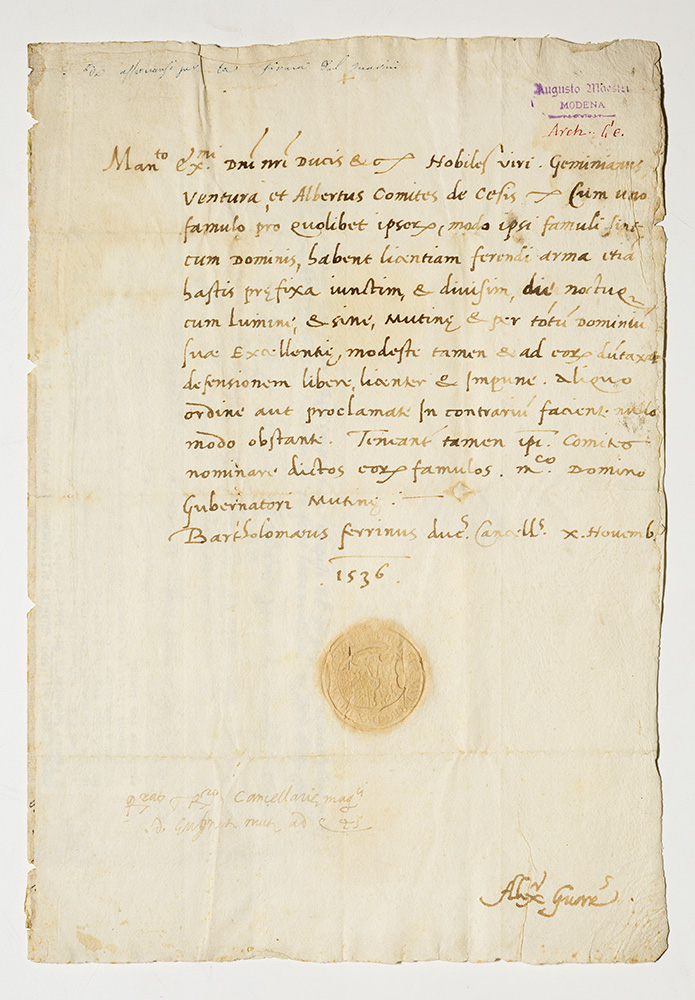 Augusto Maestri
MODENA
Arch. Ge.
Man^to Ex^mi. Dnī nrī Ducis & c Nobiles viri. Geminianus
Ventura, et Albertus Comites de Cesis Cum uno
famulo pro quolibet ipsor, modo ipsi famuli sint
cum Dominis, habent licentiam ferendi arma etiā
hastis pręfixa iunctim, & divisim, die noctuq
cum lumine, & sine, Mutinę & per totū Dominiū
suæ Excellentię, modeste tamen & ad eor dūtaxat
defensionem libere, licenter & Impune. Aliquo
ordine aut proclamate In contrariū facient nullo
modo obstante. Teneant tamen ipi Comites
nominare dictos eor famulos. m^co. Domino
Gubernatori Mutinę.
Bartholomæus ferrinus duc^s. Cancell^s. x. Novemb.
1536.
Cancellarie mag^ci